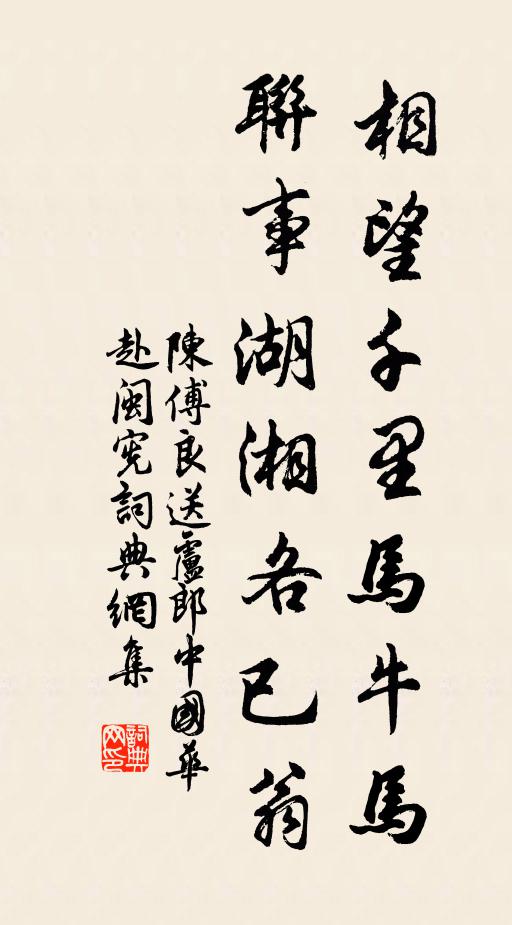 相望千里馬牛馬
聯事湖湘各已翁
陳傅良送盧郎中國華
赴閩宪詞典網集
詞典网印